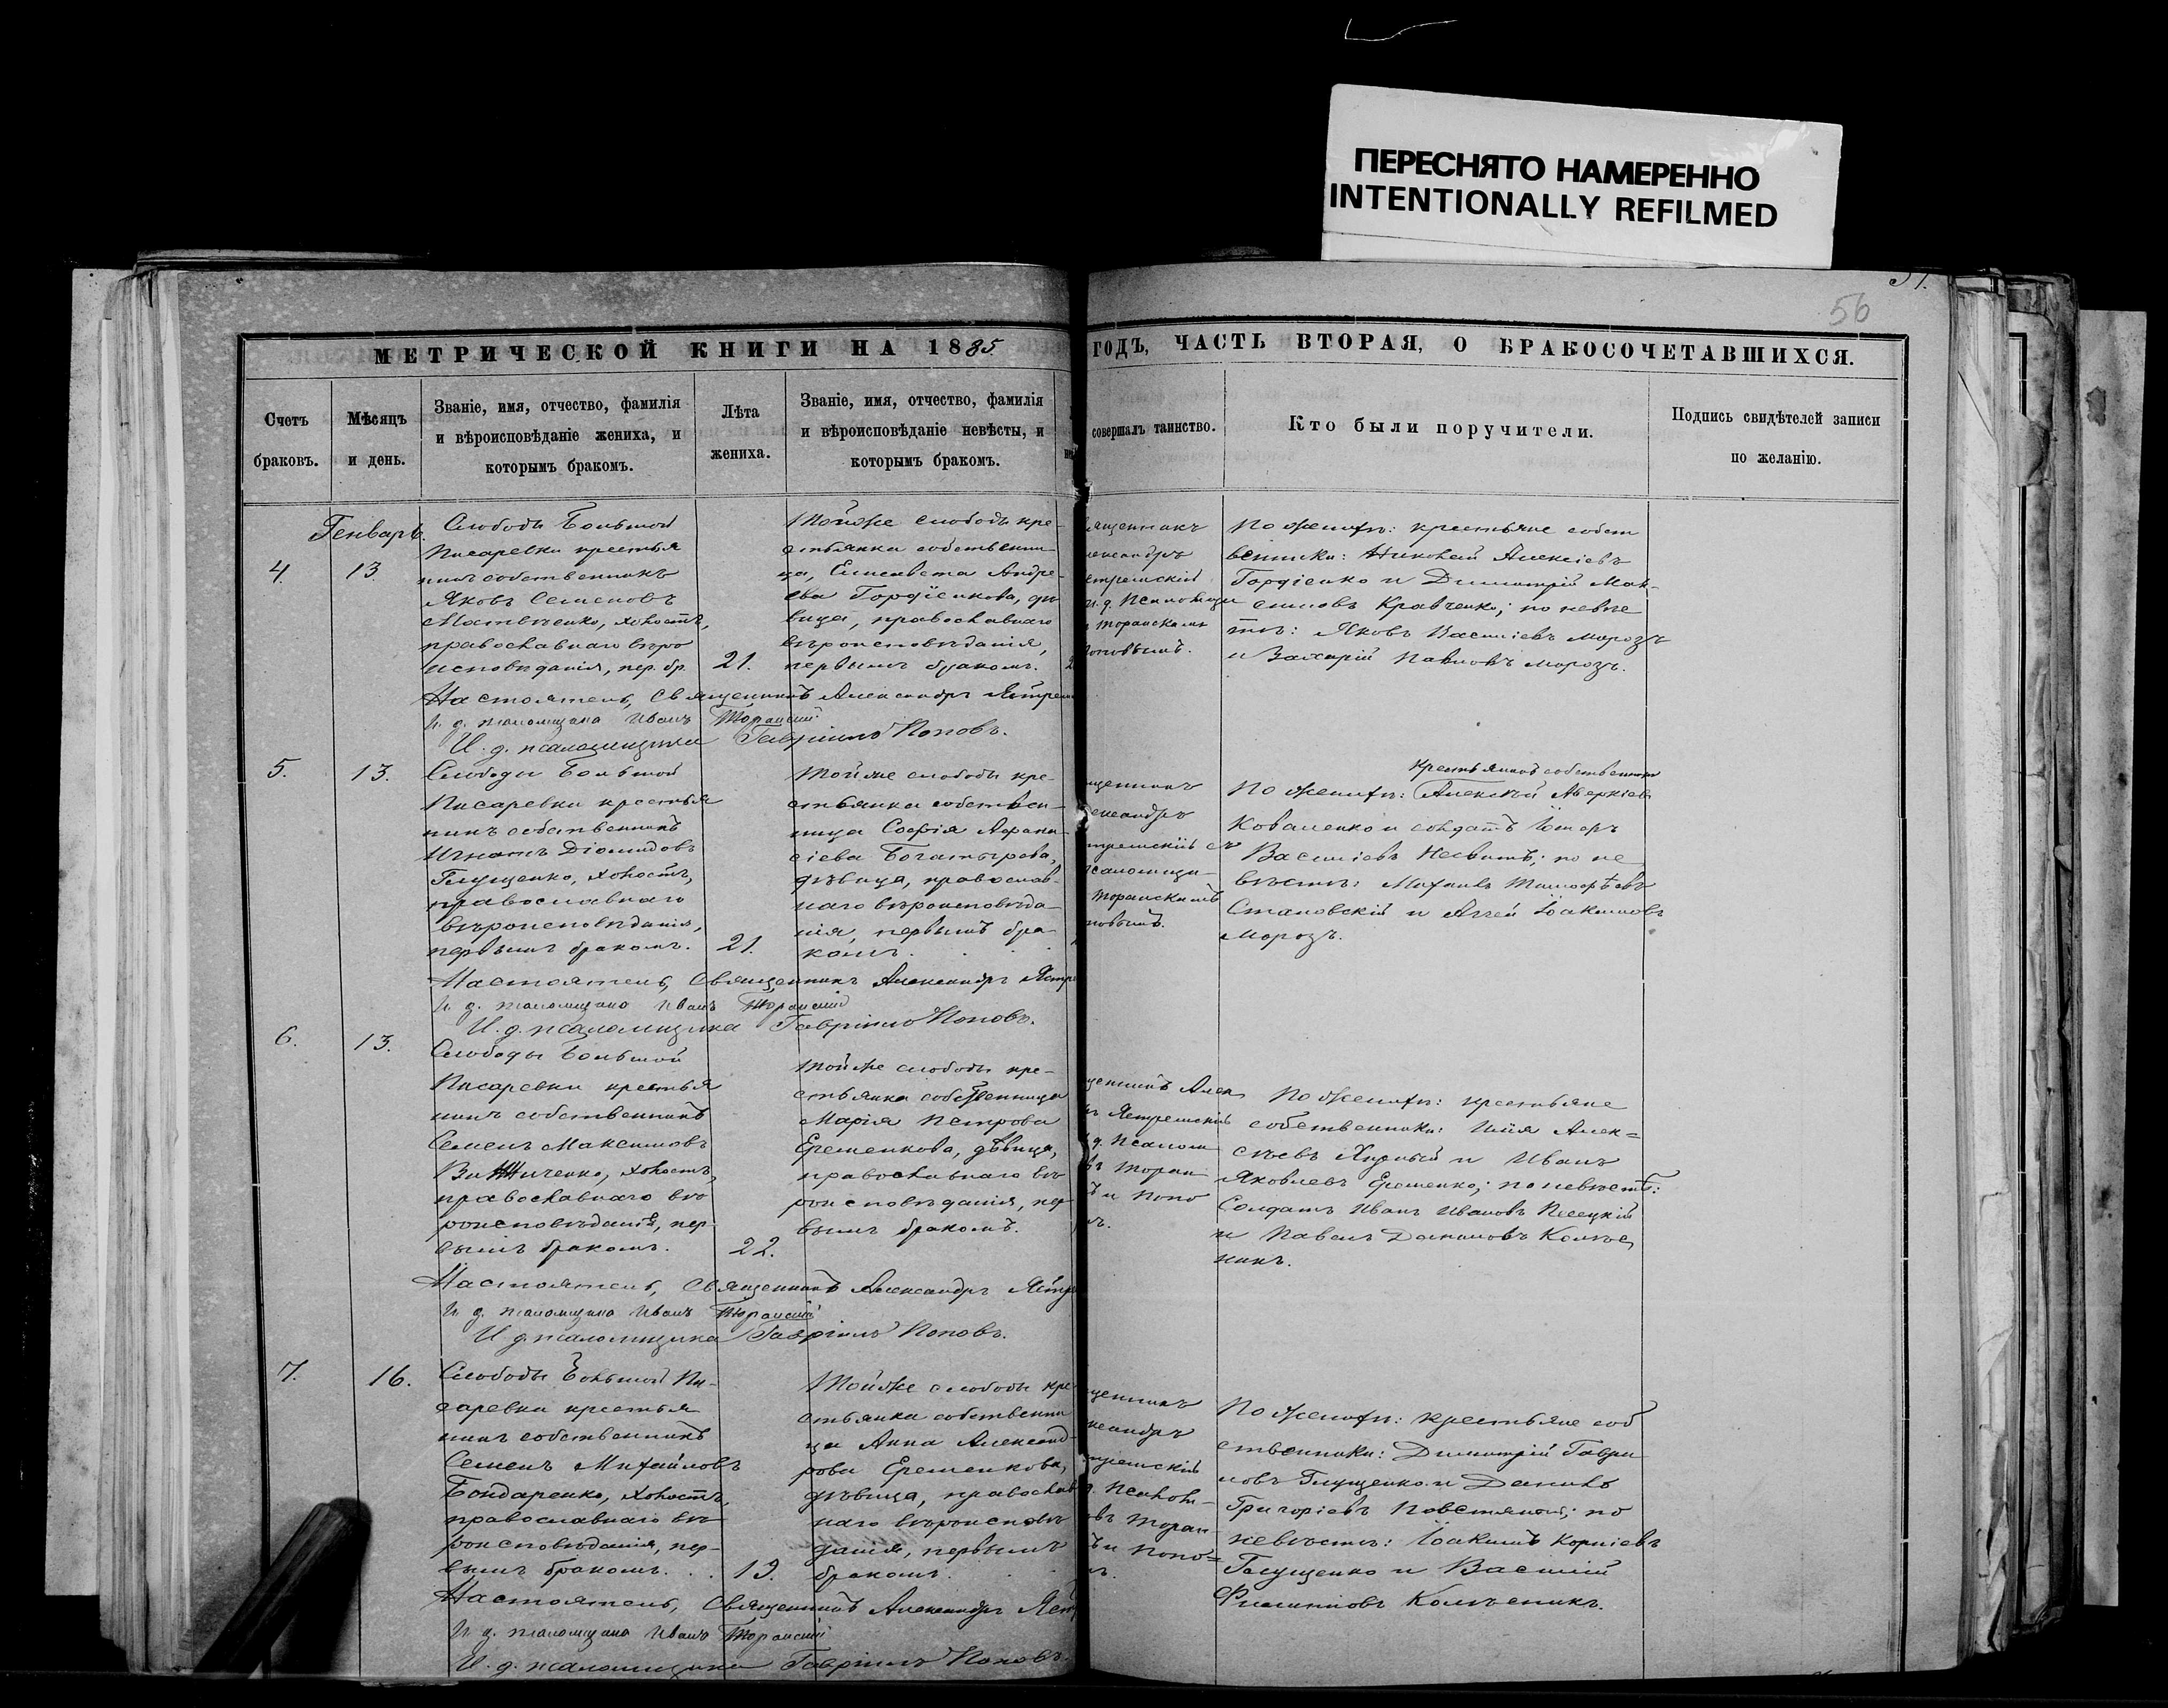 ПЕРЕСНЯТО НАМЕРЕННО
INTENTIONALLY REFILMED
56
МЕТРИЧЕСКОЙ КНИГИ НА 1885
ГОДЪ, ЧАСТЬ ВТОРАЯ, О БРАКОСОЧЕТАВШИХСЯ.
Счетъ
браковъ.
Мѣсяцъ
и день.
Званіе, имя, отчество, фамилія
и вѣроисповѣданіе жениха, и
которымъ бракомъ.
Лѣта
жениха.
Званіе, имя, отчество, фамилія
и вѣроисповѣданіе невѣсты, и
которымъ бракомъ.
совершалъ таинство.
Кто были поручители.
Подпись свидѣтелей записи
по желанію.
Генварь.
4.
13.
Слободы Большой
Писаревки крестья
нинъ собственникъ
Яковъ Семеновъ
Матвѣенко, холостъ,
православнаго вѣро
исповѣданія, пер. бр.
21.
Тойже слободы кре-
стьянка собственни
ца, Елисавета Андре-
ева Гордіенкова, дѣ
вица, православнаго
вѣроисповѣданія,
первымъ бракомъ.
По женихѣ: крестьяне собст
венники: Николай Алексіевъ
Гордіенко и Димитрій Мак-
симовъ Кравченко; по невѣс
тѣ: Яковъ Василіевъ Морозъ
и Захарій Павловъ Морозъ.
Настоятель, Священникъ Александръ
И. д. псаломщика Иванъ Торанскій
И. д. псаломщика Гавріилъ Поповъ.
5.
13.
Слободы Большой
Писаревки крестья
нинъ собственникъ
Игнатъ Діомидовъ
Глущенко, холостъ,
православнаго
вѣроисповѣданія,
первымъ бракомъ.
21.
Тойже слободы кре-
стьянка собствен-
ница Софія Афана-
сіева Богатырева,
дѣвица, православ-
наго вѣроисповѣда-
нія, первымъ бра-
комъ.
Крестьянинъ собственникъ
По женихѣ: Алексѣй Аверкіевъ
Коваленко и солдатъ
Василіевъ; по не
вѣстѣ: Михаилъ Тимофѣевъ
Становскій и Аггей Іоакимовъ
Морозъ.
Настоятель, Священникъ Александръ
И. д. псаломщика Иванъ Торанскій
И. д. псаломщика Гавріилъ Поповъ.
6.
13.
Слободы Большой
Писаревки крестья
нинъ собственникъ
Семенъ Максимовъ
холостъ,
православнаго вѣ
роисповѣданія, пер-
вымъ бракомъ.
22.
Тойже слободы кре-
стьянка собственница
Марія Петрова
Еременкова, дѣвица,
православнаго вѣ
роисповѣданія, пер-
вымъ бракомъ.
По женихѣ: крестьяне
собственники: Илія Алек=
сѣевъ и Иванъ
Яковлевъ Еременко; по невѣстѣ:
Солдатъ Иванъ Ивановъ
и Павелъ Даниловъ Колѣс
никъ.
Настоятель, Священникъ Александръ
И. д. псаломщика Иванъ Торанскій
И. д. псаломщика Гавріилъ Поповъ.
7.
16.
Слободы Большой Пи-
саревки крестья
нинъ собственникъ
Семенъ Михайловъ
Бондаренко, холостъ,
православнаго вѣ-
роисповѣданія, пер-
вымъ бракомъ.
19.
Тойже слободы кре-
стьянка собственни
ца Анна Александ-
рова Еременкова,
дѣвица, православ
наго вѣроисповѣ
данія, первымъ
бракомъ.
По женихѣ: крестьяне соб
ственники: Димитрій Гаври
ловъ Глущенко и Даніилъ
Григоріевъ Повстяной; по
невѣстѣ: Іоакимъ Корніевъ
Глущенко и Василій
Филипповъ Колѣсникъ.
Настоятель, Священникъ Александръ
И. д. псаломщика Иванъ Торанскій
И. д. псаломщика Гавріилъ Поповъ.